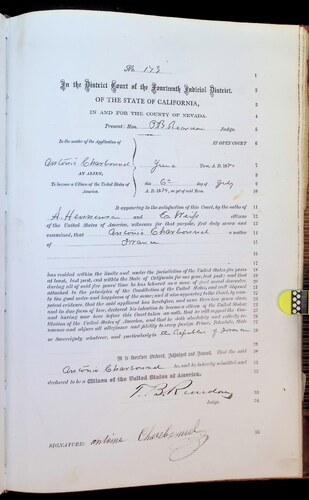 No 173
In the District Court of the Fourteenth Judicial District,
OF THE STATE OF CALIFORNIA,
IN AND FOR THE COUNTY OF NEVADA.
Present: Hon. T B Reardan Judge.
In the matter of the Application of
IN OPEN COURT
Antoine Charbonnel
June Term, A. D. 187
AN ALIEN,
To become a Citizen of the United States of America.
this 6th day of July
A. D. 187 , as yet of said Term.
It appearing to the satisfaction of this Court, by the oaths of
A. and E citizens
of the United States of America, witnesses for that purpose, first duly sworn and
examined, that Antoine Charbonnel a native
of France
has resided within the limits and under the jurisdiction of the United States five years
at least, last past, and within the State of California for one year, last past; and that
during all of said five years' time he has behaved as a man of good moral character,
attached to the principles of the Constitution of the United States, and well disposed
to the good order and happiness of the same; and it also appearing to the Court, by com-
petent evidence, that the said applicant has heretofore, and more than two years since,
and in due form of law, declared his intention to become a citizen of the United States;
and having now here before this Court taken an oath, that he will support the Con-
stitution of the United States of America, and that he doth absolutely and entirely re-
nounce and abjure all allegiance and fidelity to every foreign Prince, Potentate, State
or Sovereignty whatever, and particularly to the Republic of France
It is therefore Ordered, Adjudged and Decreed, That the said
Antoine Charbonnel be, and he hereby admitted and
declared to be a Citizen of the United States of America.
T. B. Reardan
Judge.
SIGNATURE: antoine Charbonnel
1
2
3
4
5
6
7
8
9
10
11
12
13
14
15
16
17
18
19
20
21
22
23
24
25
26
27
28
29
30
31
32
33
34
35